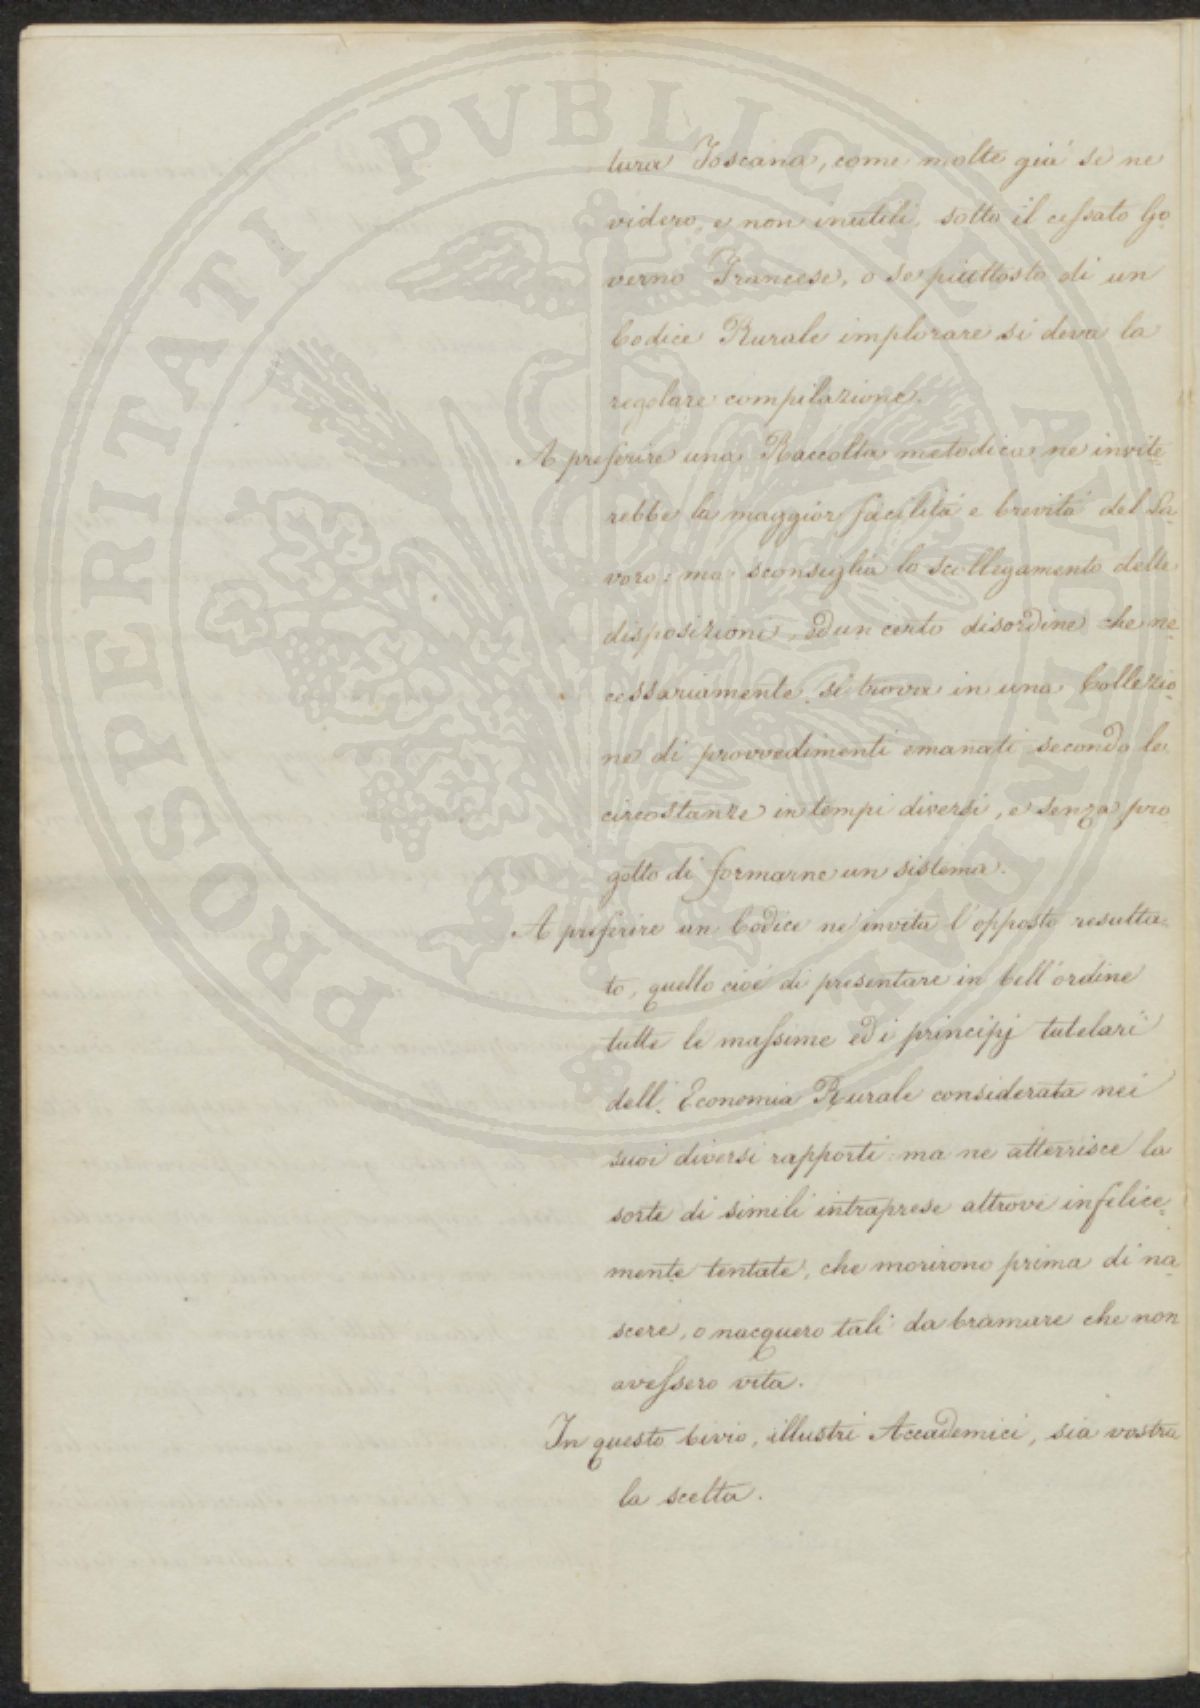 tura Toscana, come molte già se ne
videro, e non inutili, sotto il cessato Go-
verno Francese, o se piuttosto di un
Codice Rurale implorare si deva la
regolare compilazione.
A preferire una Raccolta metodica ne invite-
rebbe la maggior facilità e brevità del La-
voro: ma sconsiglia lo scollegamento delle
disposizioni, ed un certo disordine che ne-
cessariamente si trova in una Collezio-
ne di provvedimenti emanati secondo le
circostanze in tempi diversi, e senza pro-
getto di formarne un sistema.
A preferire un Codice ne invita l'opposto resulta-
to, quello cioè di presentare in bell'ordine
tutte le massime ed i principj tutelari
dell'Economia Rurale considerata nei
suoi diversi rapporti: ma ne atterrisce la
sorte di simili intraprese altrove infelice-
mente tentate, che morirono prima di na-
scere, o nacquero tali da bramare che non
avessero vita.
In questo bivio, illustri Accademici, sia vostra
la scelta.
PROSPERITATI PVBLICAE AVGENDAE